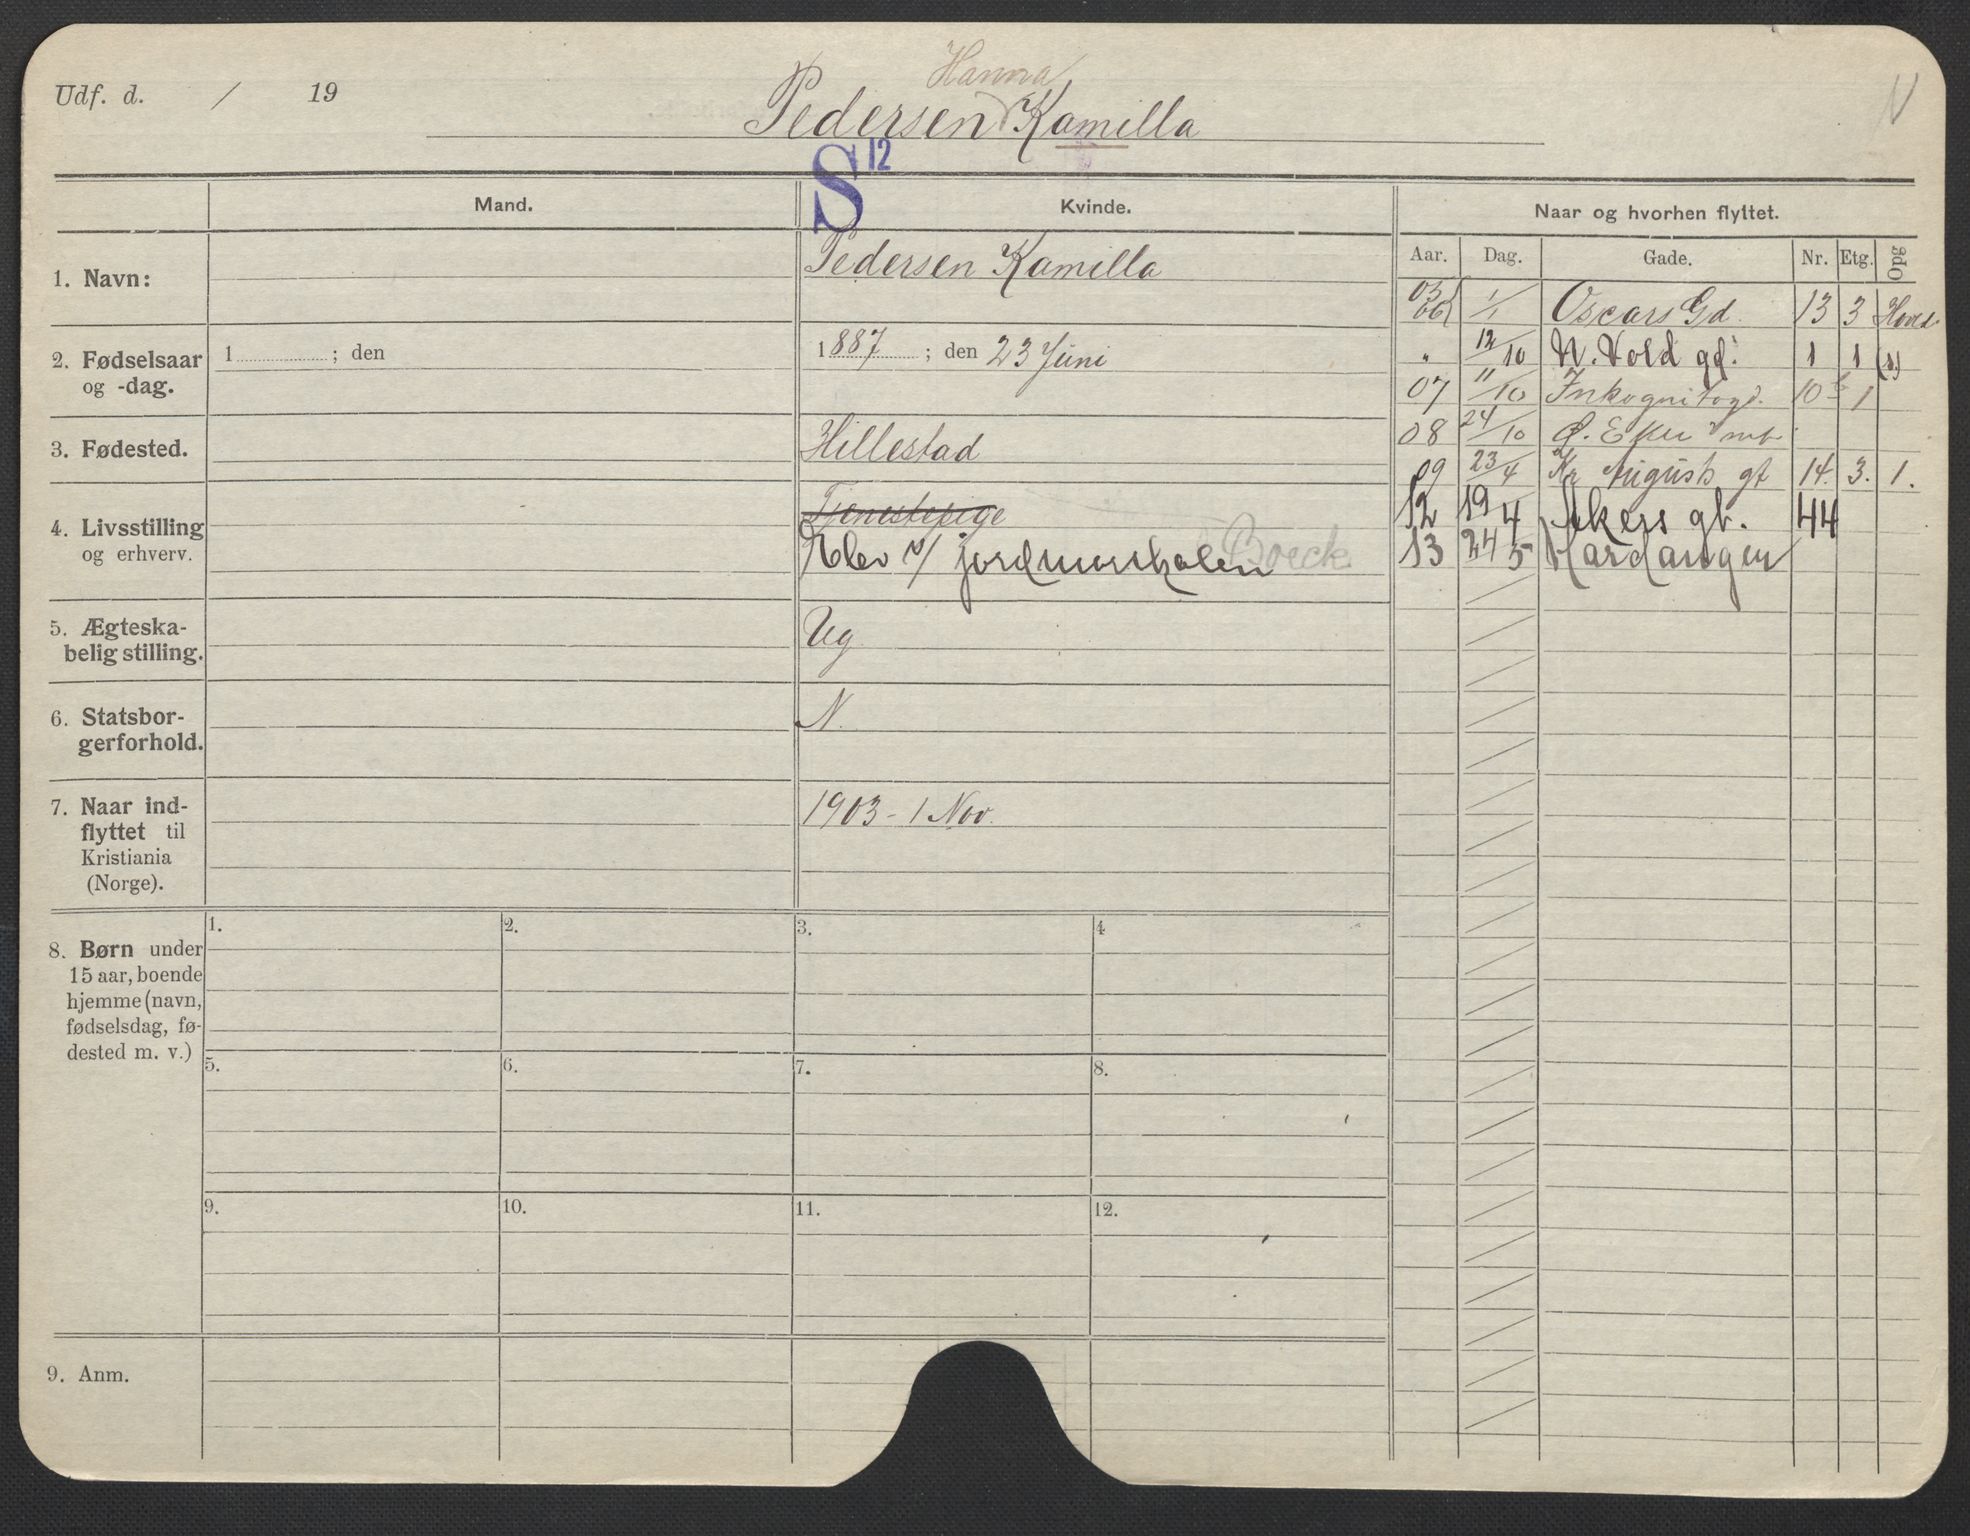 Udf. d. / 19
Hanna
Pedersen Kamilla
N
S 12
Mand.
Kvinde.
Naar og hvorhen flyttet.
Aar. Dag. Gade. Nr. Etg. Opg
1. Navn:
Pedersen Kamilla
2. Fødselsaar
og -dag.
1 ; den
1887 ; den 23 Juni
3. Fødested.
Hillestad
4. Livsstilling
og erhverv.
Tjenestepige
Elev v/ jordmorskolen
Boeck
5. Ægteska-
belig stilling.
Ug
6. Statsbor-
gerforhold.
N.
7. Naar ind-
flyttet til
Kristiania
(Norge).
1903 - 1 Nov.
8. Børn under
15 aar, boende
hjemme (navn,
fødselsdag, fø-
dested m. v.)
1. 2. 3. 4
5. 6. 7. 8.
9. 10. 11. 12.
9. Anm.
06 1/1 Oscars Gd. 13 3
" 12/10 N. Vold gd. 1 1
07 11/10 Inkognitogd. 10 b 1
08 24/10
09 23/4 Kr Augusts gt 14. 3. 1.
12 19 4 Akers gt. 44
13 24 5 Hardanger